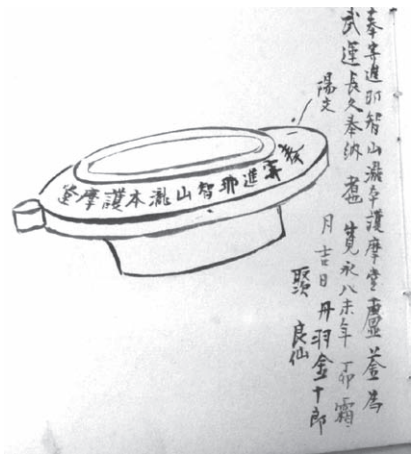 奉寄進那智山瀧本護摩堂爐釜為
武運長久奉納者也 寛永八未年丁卯霜
月吉日 丹羽金十郎
良仙
陽文
奉寄進那智山瀧本護摩堂